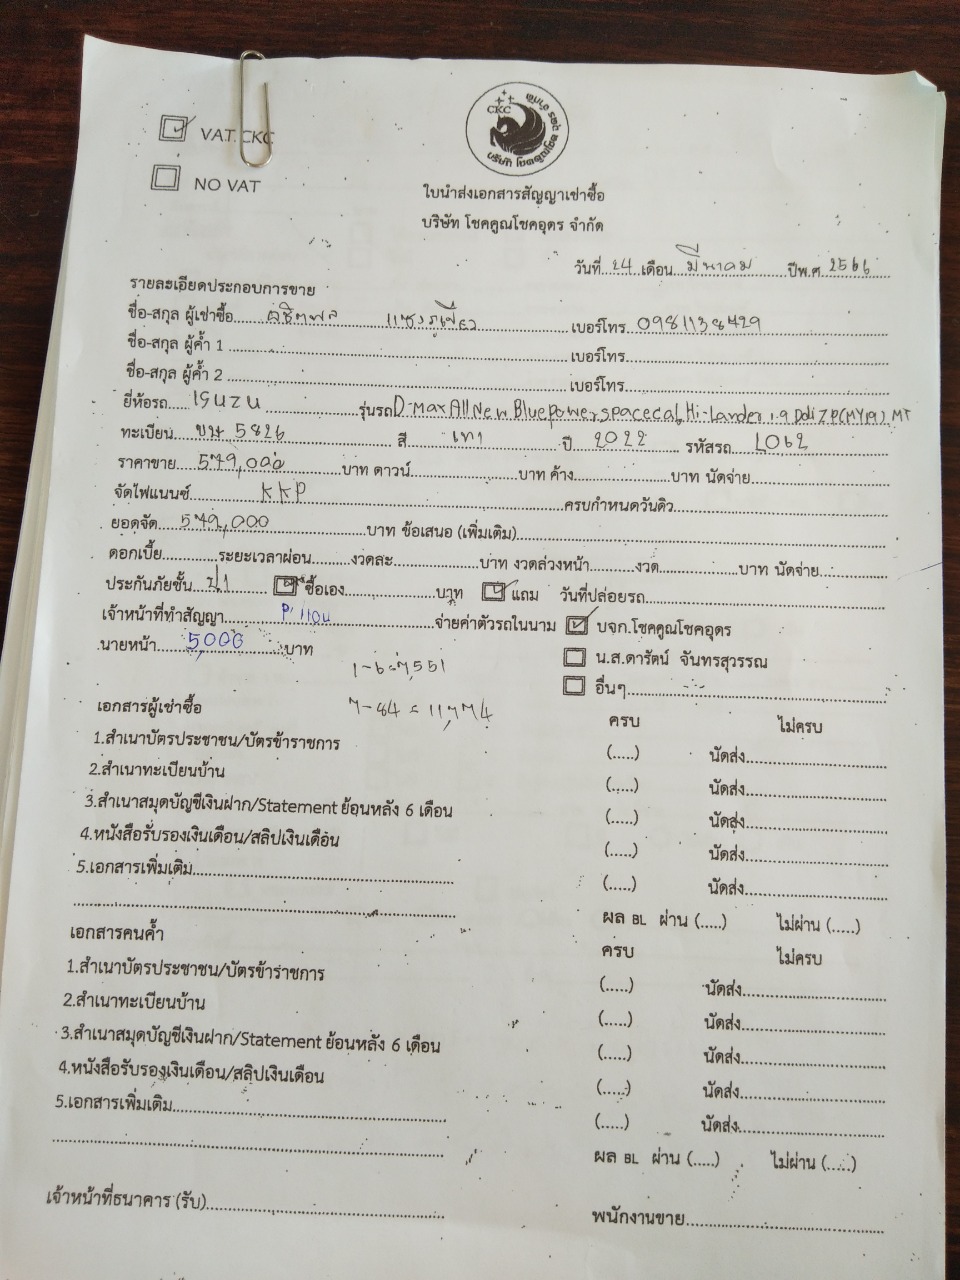 CKC
บริษัท โชคคูณโชค อุดร จำกัด
VAT. CKC
NO VAT
ใบนำส่งเอกสารสัญญาเช่าซื้อ
บริษัท โชคคูณโชคอุดร จำกัด
วันที่ 24 เดือน มีนาคม ปีพ.ศ 2566
รายละเอียดประกอบการขาย
ชื่อ-สกุล ผู้เช่าซื้อ แซงภูเขียว เบอร์โทร 0981138429
ชื่อ-สกุล ผู้ค้ำ 1 เบอร์โทร
ชื่อ-สกุล ผู้ค้ำ 2 เบอร์โทร
ยี่ห้อรถ ISUZU รุ่นรถ D-Max All New Bluepower spacecab Hi-Lander 1.9 Ddi Z P(MY19) MT
ทะเบียน ขษ 5826 สี เทา ปี 2022 รหัสรถ L062
ราคาขาย 579,000 บาท ดาวน์ บาท ค้าง บาท นัดจ่าย
จัดไฟแนนซ์ KKP ครบกำหนดวันดิว
ยอดจัด 579,000 บาท ข้อเสนอ (เพิ่มเติม)
ดอกเบี้ย ระยะเวลาผ่อน งวดละ บาท งวดล่วงหน้า งวด บาท นัดจ่าย
ประกันภัยชั้น ป1 ซื้อเอง บาท แถม วันที่ปล่อยรถ
เจ้าหน้าที่ทำสัญญา จ่ายค่าตัวรถในนาม บจก.โชคคูณโชคอุดร
นายหน้า 5,000 บาท
น.ส.ดารัตน์ จันทรสุวรรณ
1-6=7,551
อื่นๆ
7-84 = 11,774
เอกสารผู้เช่าซื้อ ครบ ไม่ครบ
1.สำเนาบัตรประชาชน/บัตรข้าราชการ (.....) นัดส่ง
2.สำเนาทะเบียนบ้าน (.....) นัดส่ง
3.สำเนาสมุดบัญชีเงินฝาก/Statement ย้อนหลัง 6 เดือน (.....) นัดส่ง
4.หนังสือรับรองเงินเดือน/สลิปเงินเดือน (.....) นัดส่ง
5.เอกสารเพิ่มเติม (.....) นัดส่ง
ผล BL ผ่าน (.....) ไม่ผ่าน (.....)
เอกสารคนค้ำ ครบ ไม่ครบ
1.สำเนาบัตรประชาชน/บัตรข้าราชการ (.....) นัดส่ง
2.สำเนาทะเบียนบ้าน (.....) นัดส่ง
3.สำเนาสมุดบัญชีเงินฝาก/Statement ย้อนหลัง 6 เดือน (.....) นัดส่ง
4.หนังสือรับรองเงินเดือน/สลิปเงินเดือน (.....) นัดส่ง
5.เอกสารเพิ่มเติม (.....) นัดส่ง
ผล BL ผ่าน (.....) ไม่ผ่าน (.....)
เจ้าหน้าที่ธนาคาร (รับ) พนักงานขาย